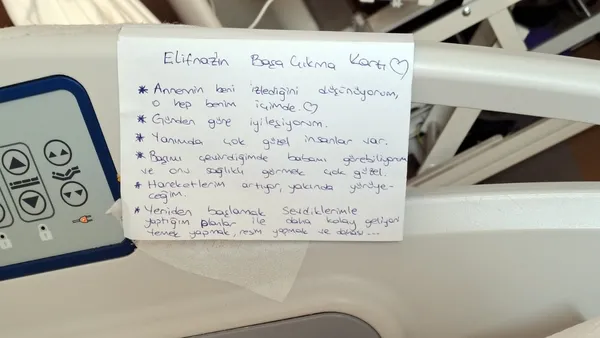 Elifnaz'ın Başa Çıkma Kartı ♡
* Annemin beni izlediğini düşünüyorum,
o hep benim içimde. ♡
* Günden güne iyileşiyorum.
* Yanımda çok güzel insanlar var.
* Başımı çevirdiğimde babamı görebiliyorum
ve onu sağlıklı görmek çok güzel.
* Hareketlerim artıyor, yakında yürüye-
ceğim.
* Yeniden başlamak sevdiklerimle
yaptığım planlar ile daha kolay geliyor.
Yemek yapmak, resim yapmak ve dahası...